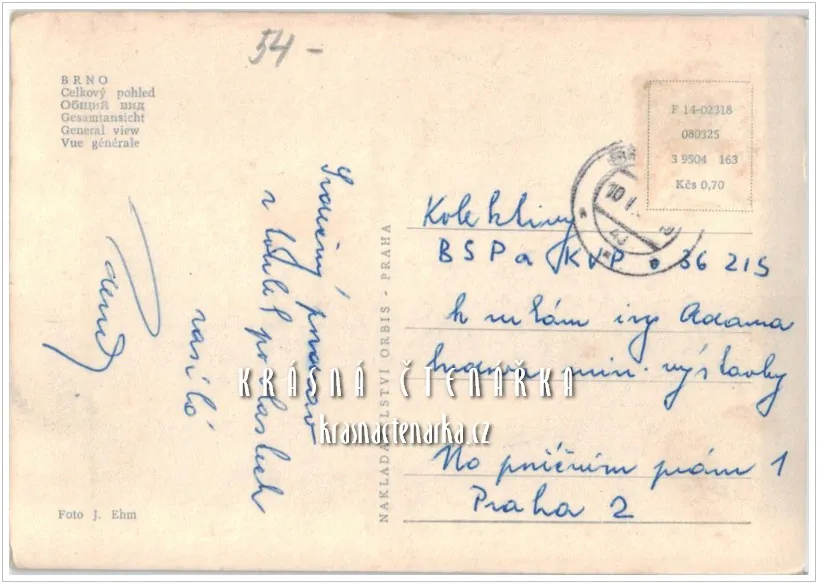 54-
BRNO
Celkový pohled
Общий вид
Gesamtansicht
General view
Vue générale
F 14-02318
080325
3 9504 163
Kčs 0,70
Srdečný pozdrav
z
zasílá
NAKLADATELSTVÍ ORBIS - PRAHA
Kolektivu
BSP a KVP 36 215
k rukám ing Adama
min. výstavby
Na příčním 1
Praha 2
KRÁSNÁ ČTENÁŘKA
krasnactenarka.cz
Foto J. Ehm